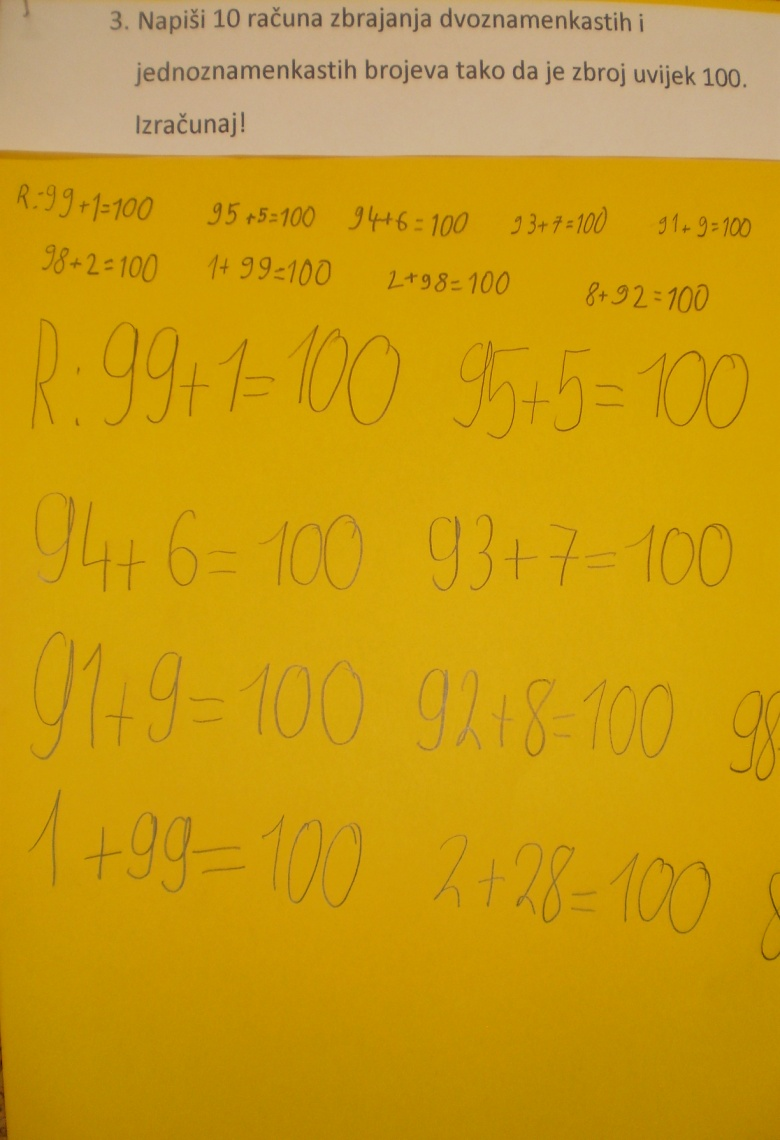 3. Napiši 10 računa zbrajanja dvoznamenkastih i
jednoznamenkastih brojeva tako da je zbroj uvijek 100.
Izračunaj!
R:99+1=100 95+5=100 94+6=100 93+7=100 91+9=100
98+2=100 1+99=100 2+98=100 8+92=100
R:99+1=100 95+5=100
94+6=100 93+7=100
91+9=100 92+8=100 98
1+99=100 2+28=100 8